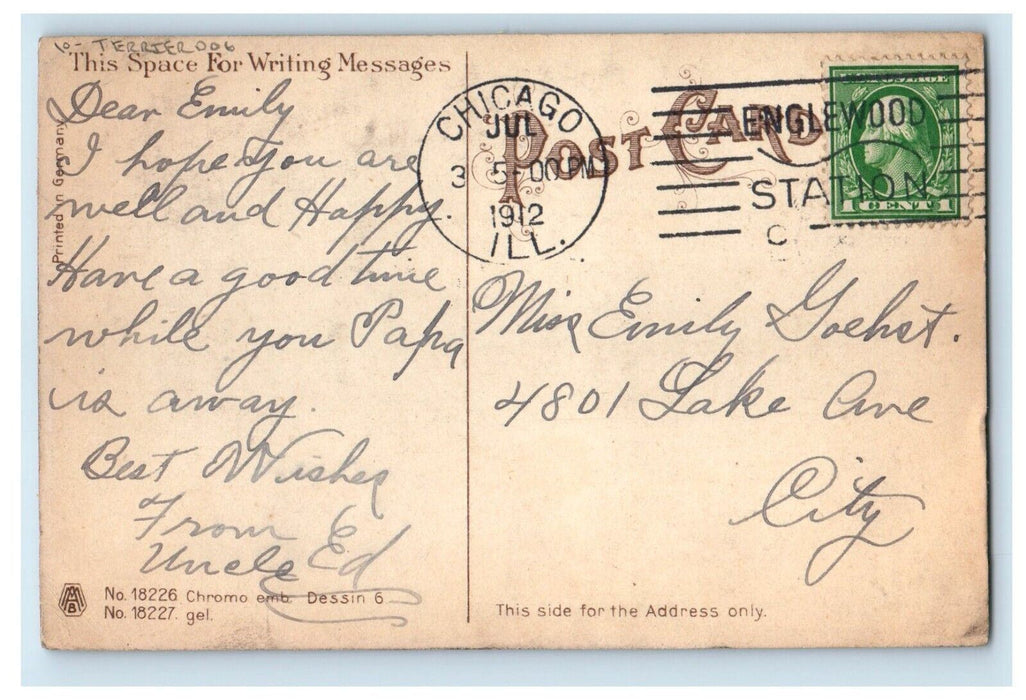 10- TERRIER006
This Space For Writing Messages
Dear Emily
I hope you are
well and Happy.
Have a good time
while you Papa
is away.
Best Wishes
From
Uncle Ed
Printed in Germany
No. 18226 Chromo emb. Dessin 6
No. 18227. gel.
MB
POST CARD
CHICAGO
JUL
3 5-00 PM
1912
ILL.
ENGLEWOOD
STATION
C
POSTAGE
1 CENT 1
Miss Emily Goehst.
4801 Lake Ave
City
This side for the Address only.